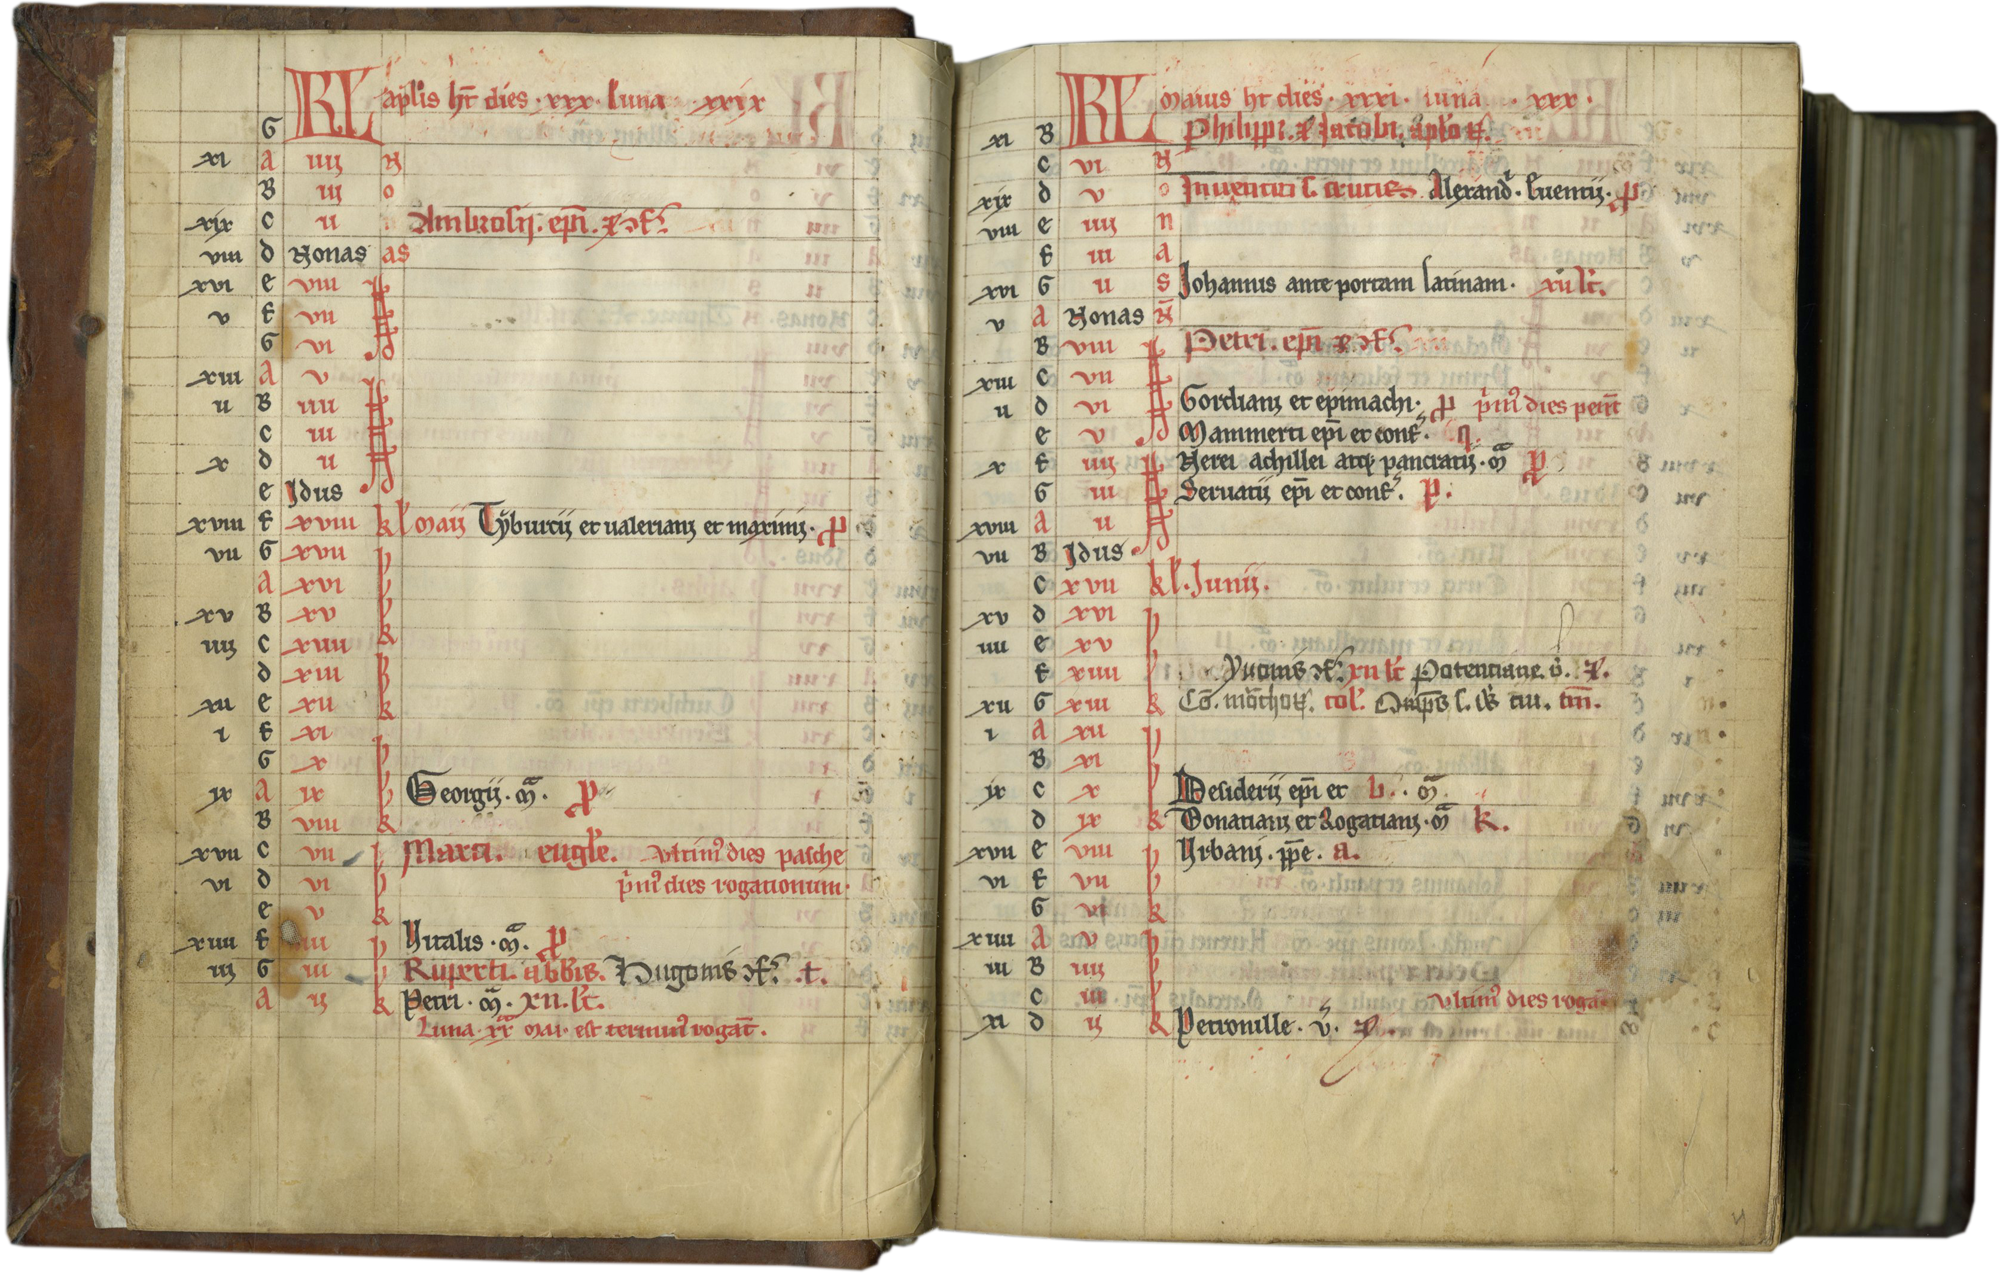 KL aplis ht dies · xxx · luna xxix
G
xi A iiij N
B iij o
xix C ii n Ambrosij . epi . et
viij d Nonas as
xvi e viij
v f vij
G vi
xiij A v
ij B iiij
C iij
x d ij
e Idus
xviij f xviij kl maij Tyburcij et ualeriani et maximi · p
vij G xvij
A xvi
xv B xv
iiij C xiiij
d xiij
xij e xij
i f xi
G x
ix A ix Georgij · m · p
B viij
xvij C vij Marci . eugle . vltim9 dies pasche
vi d vi prim9 dies rogationum ·
e v
xiiij f iiij Vitalis · m · p
iij G iij Ruperti . abbis . Hugonis . t .
A ij Petri · m · xii · lc .
Luna xx mai · est termin9 rogat .
KL Maius ht dies · xxxi · luna · xxx ·
xi B Philippi . et Jacobi . aplo
C vi N
xix d v o Inuentio s crucis Alexand · Euentij · p
viij e iiij n
f iij a
xvi G ii s Johannis ante portam latinam · xii lc .
v A Nonas N
B viij Petri . epi et
xiij C vij
ij d vi Gordiani et epimachi · p prim9 dies pent
e v Mammerti epi et conf .
x f iiij Nerei achillei atq pancratij · m p
G iij Seruatij epi et conf . p .
xviij A ij
vij B Idus
C xvij kl . Junij .
xv d xvi
iiij e xv
f xiiij Yuonis xii lc Potenciane . v .
xij G xiij
i A xij
B xi
ix C x Desiderij epi et b . m
d ix Donatiani et Rogatiani · m k .
xvij e viij Urbani · ppe . a .
vi f vij
G vi
xiiij A v
iij B iiij
C iij vltim9 dies rogat
xi d ij Petronille · v ·